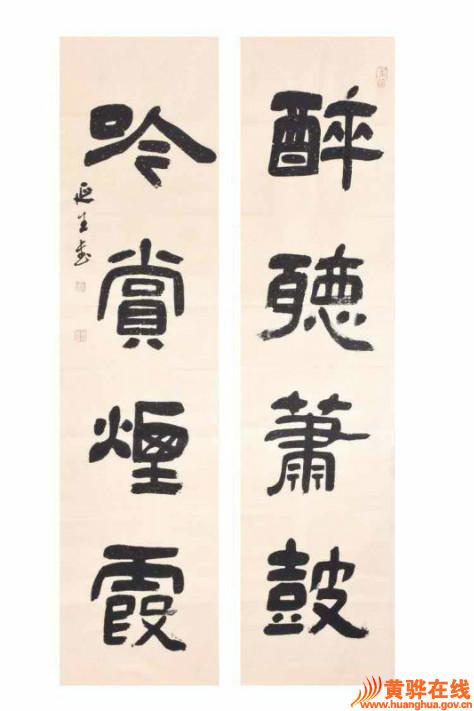 醉聽蕭皷
吟賞煙霞
延生書
黄骅在线
www.huanghua.gov.cn